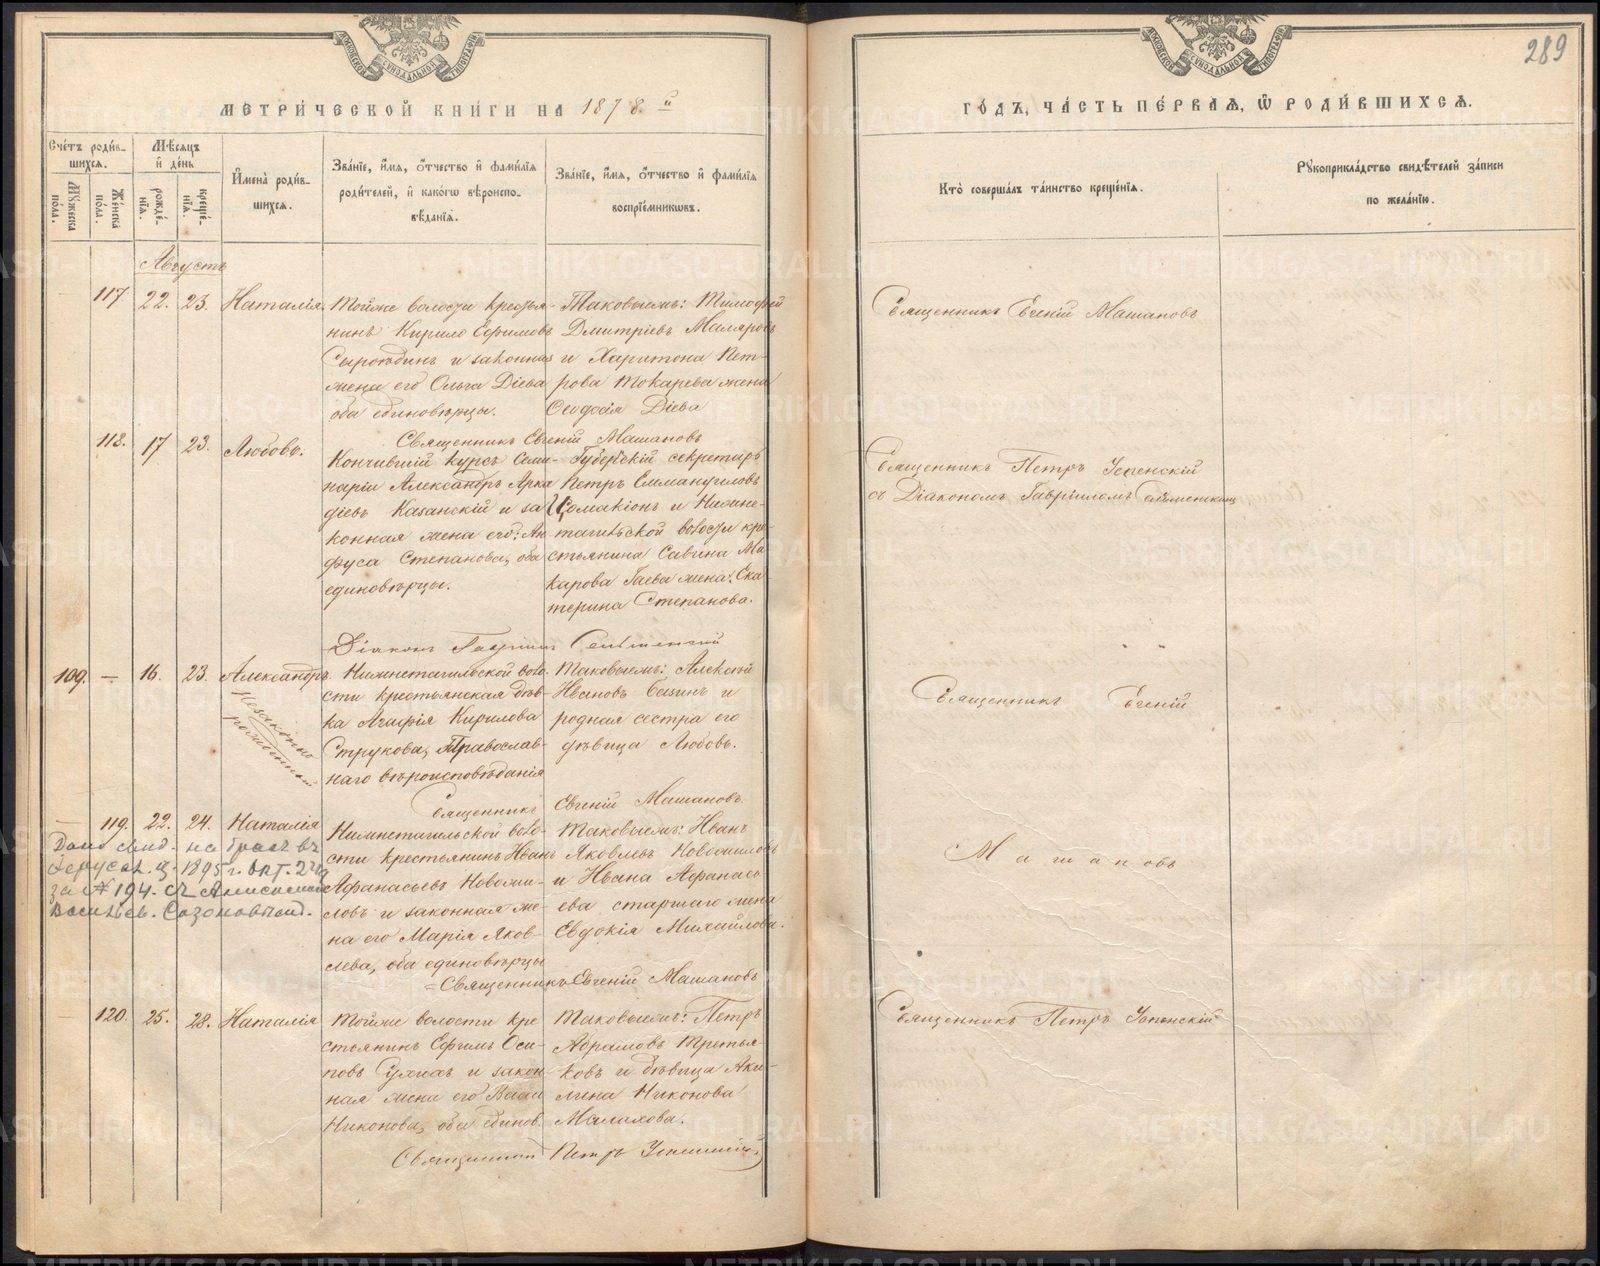 289
МЕТРИ́ЧЕСКОЙ КНИ́ГИ НА 1878.й
ГО́ДЪ, ЧА́СТЬ ПЕ́РВАЯ, Ѽ РОДИ́ВШИХСѦ.
Сче́тъ роди́в-
шихсѧ.
Мꙋ́жеска по́ла.
Же́нска по́ла.
Мѣ́сѧцъ и҆ де́нь
рожде́-
нїѧ.
креще́-
нїѧ.
И҆мена̀ роди́в-
шихсѧ.
Зва́нїе, и҆́мѧ, ѻ҆́тчество и҆ фами́лїѧ
роди́телей, и҆ како́гѡ вѣроиспо-
вѣ́данїѧ.
Зва́нїе, и҆́мѧ, ѻ҆́тчество и҆ фами́лїѧ
воспрїе́мникѡвъ.
Кто̀ соверша́лъ та́инство креще́нїѧ.
Рꙋкоприкла́дство свидѣ́телей за́писи
по жела́нїю.
Августъ
117. 22. 23. Наталія.
Тойже волости крестья-
нинъ Кирило Ефимовъ
Сыроѣдинъ и законная
жена его Ольга Діева
оба единовѣрцы.
Таковыемъ: Тимофей
Дмитріевъ Маляровъ
и Харитона Пет-
рова Токарева жена
Ѳеодосія Діева
Священникъ Евгеній Машановъ
Священникъ Евгеній Машановъ
118. 17 23. Любовь.
Кончившій курсъ Семи-
наріи Александръ Арка
діевъ Казанскій и за
конная жена его: Ан
фуса Степанова, оба
единовѣрцы.
Губернскій секретарь
Петръ Еммануиловъ
Соматіонъ и Нижне-
тагильской волости кре-
стьянина Савина Ма
карова Гаева жена: Ека
терина Степанова.
Діаконъ Гавріилъ
Священникъ Петръ Успенскій
съ Діакономъ Гавріиломъ
109. — 16. 23. Александръ
Незаконно
рожденный
Нижнетагильской воло-
сти крестьянская дѣв-
ка Агафія Кирилова
Струкова, Православ-
наго вѣроисповѣданія
Таковыемъ: Алексѣй
Ивановъ и
родная сестра его
дѣвица Любовь.
Священникъ Евгеній Машановъ
Священникъ Евгеній
119. 22. 24. Наталія
Дано свид. на бракъ въ
1895 г. окт. 24
за № 194. съ
Васильев. Сазоновымъ.
Нижнетагильской воло-
сти крестьянинъ Иванъ
Афанасьевъ Новожи-
ловъ и законная же-
на его Марія Яков-
лева, оба единовѣрцы
Таковыемъ: Иванъ
Яковлевъ Новожиловъ
и Ивана Афанась
ева старшаго жена
Евдокія Михайлова.
Священникъ Евгеній Машановъ
Машановъ
120. 25. 28. Наталія
Тойже волости кре
стьянинъ Ефимъ Оси-
повъ и закон
ная жена его
Никонова, оба единов.
Таковыемъ: Петръ
Абрамовъ Третья-
ковъ и дѣвица Аки-
лина Никонова
Малахова.
Священникъ Петръ Успенскій
Священникъ Петръ Успенскій
METRIKI.GASO-URAL.RU